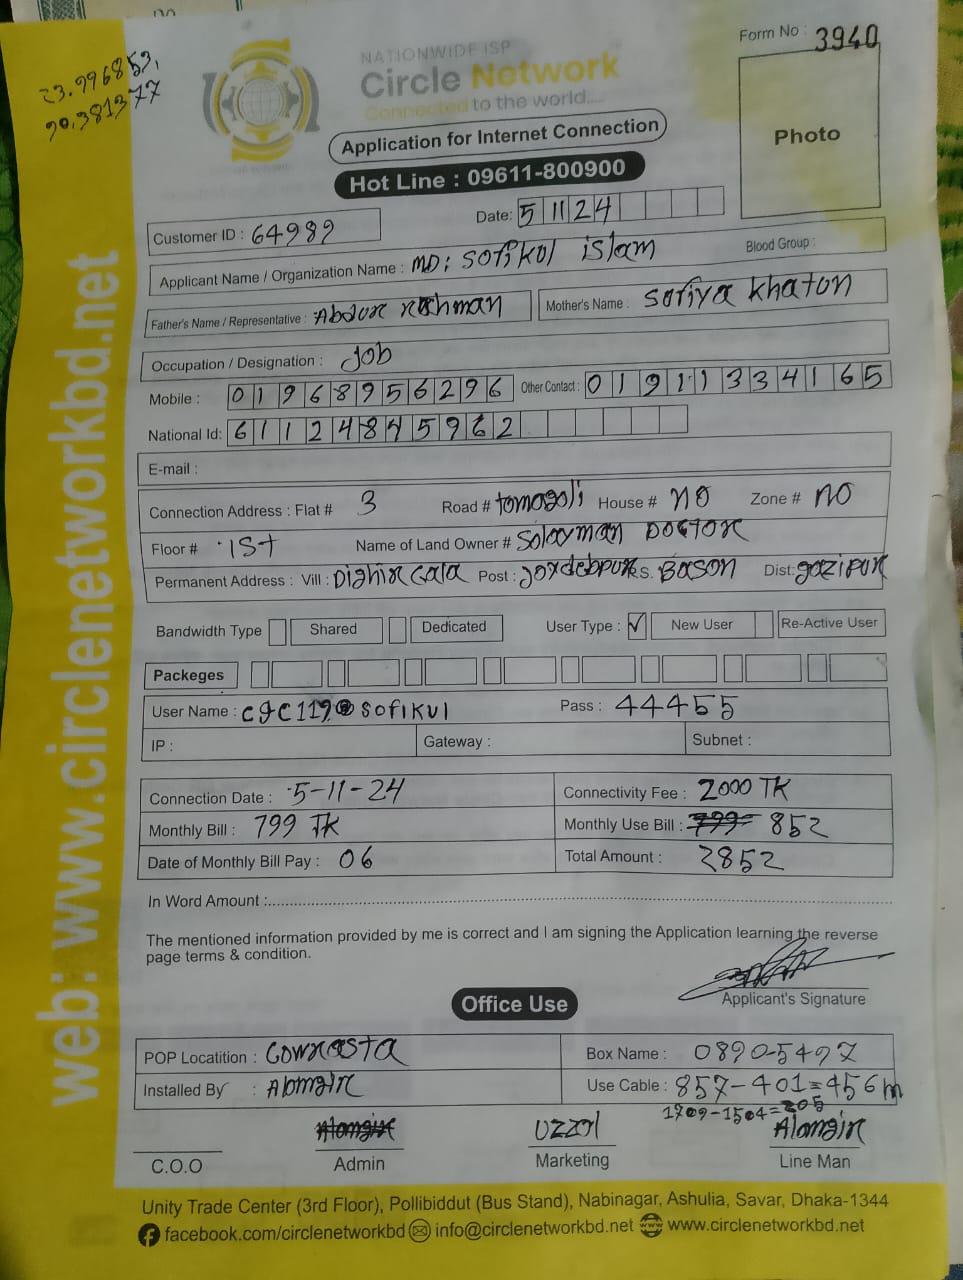 Form No : 3940
23.996853,
90.381377
NATIONWIDE ISP
Circle Network
Connected to the world....
Application for Internet Connection
Hot Line : 09611-800900
Photo
Date: 5 11 24
Customer ID : 64989
Applicant Name / Organization Name : MD: Sofikul islam Blood Group :
Father's Name / Representative : Abdur rahman Mother's Name : Sofiya khaton
Occupation / Designation : Job
Mobile : 01968956296 Other Contact : 01911334165
National Id: 61124845962
E-mail :
Connection Address : Flat # 3 Road # tomagoli House # no Zone # no
Floor # 1st Name of Land Owner # Solayman Doctor
Permanent Address : Vill : Dighir Cala Post : Joydebpur P.S. Bason Dist: gazipur
Bandwidth Type Shared Dedicated User Type : ✓ New User Re-Active User
Packeges
User Name : cgc119@sofikul Pass : 44455
IP : Gateway : Subnet :
Connection Date : 5-11-24 Connectivity Fee : 2000 TK
Monthly Bill : 799 TK Monthly Use Bill : 799 852
Date of Monthly Bill Pay : 06 Total Amount : 2852
In Word Amount :
The mentioned information provided by me is correct and I am signing the Application learning the reverse
page terms & condition.
Applicant's Signature
Office Use
POP Locatition : Cowrasta Box Name : 0890-5497
Installed By : Alomgir Use Cable : 857-401=456m
1709-1504=205
Alomgir Uzzol Alomgir
C.O.O Admin Marketing Line Man
Unity Trade Center (3rd Floor), Pollibiddut (Bus Stand), Nabinagar, Ashulia, Savar, Dhaka-1344
facebook.com/circlenetworkbd info@circlenetworkbd.net www.circlenetworkbd.net
web: www.circlenetworkbd.net